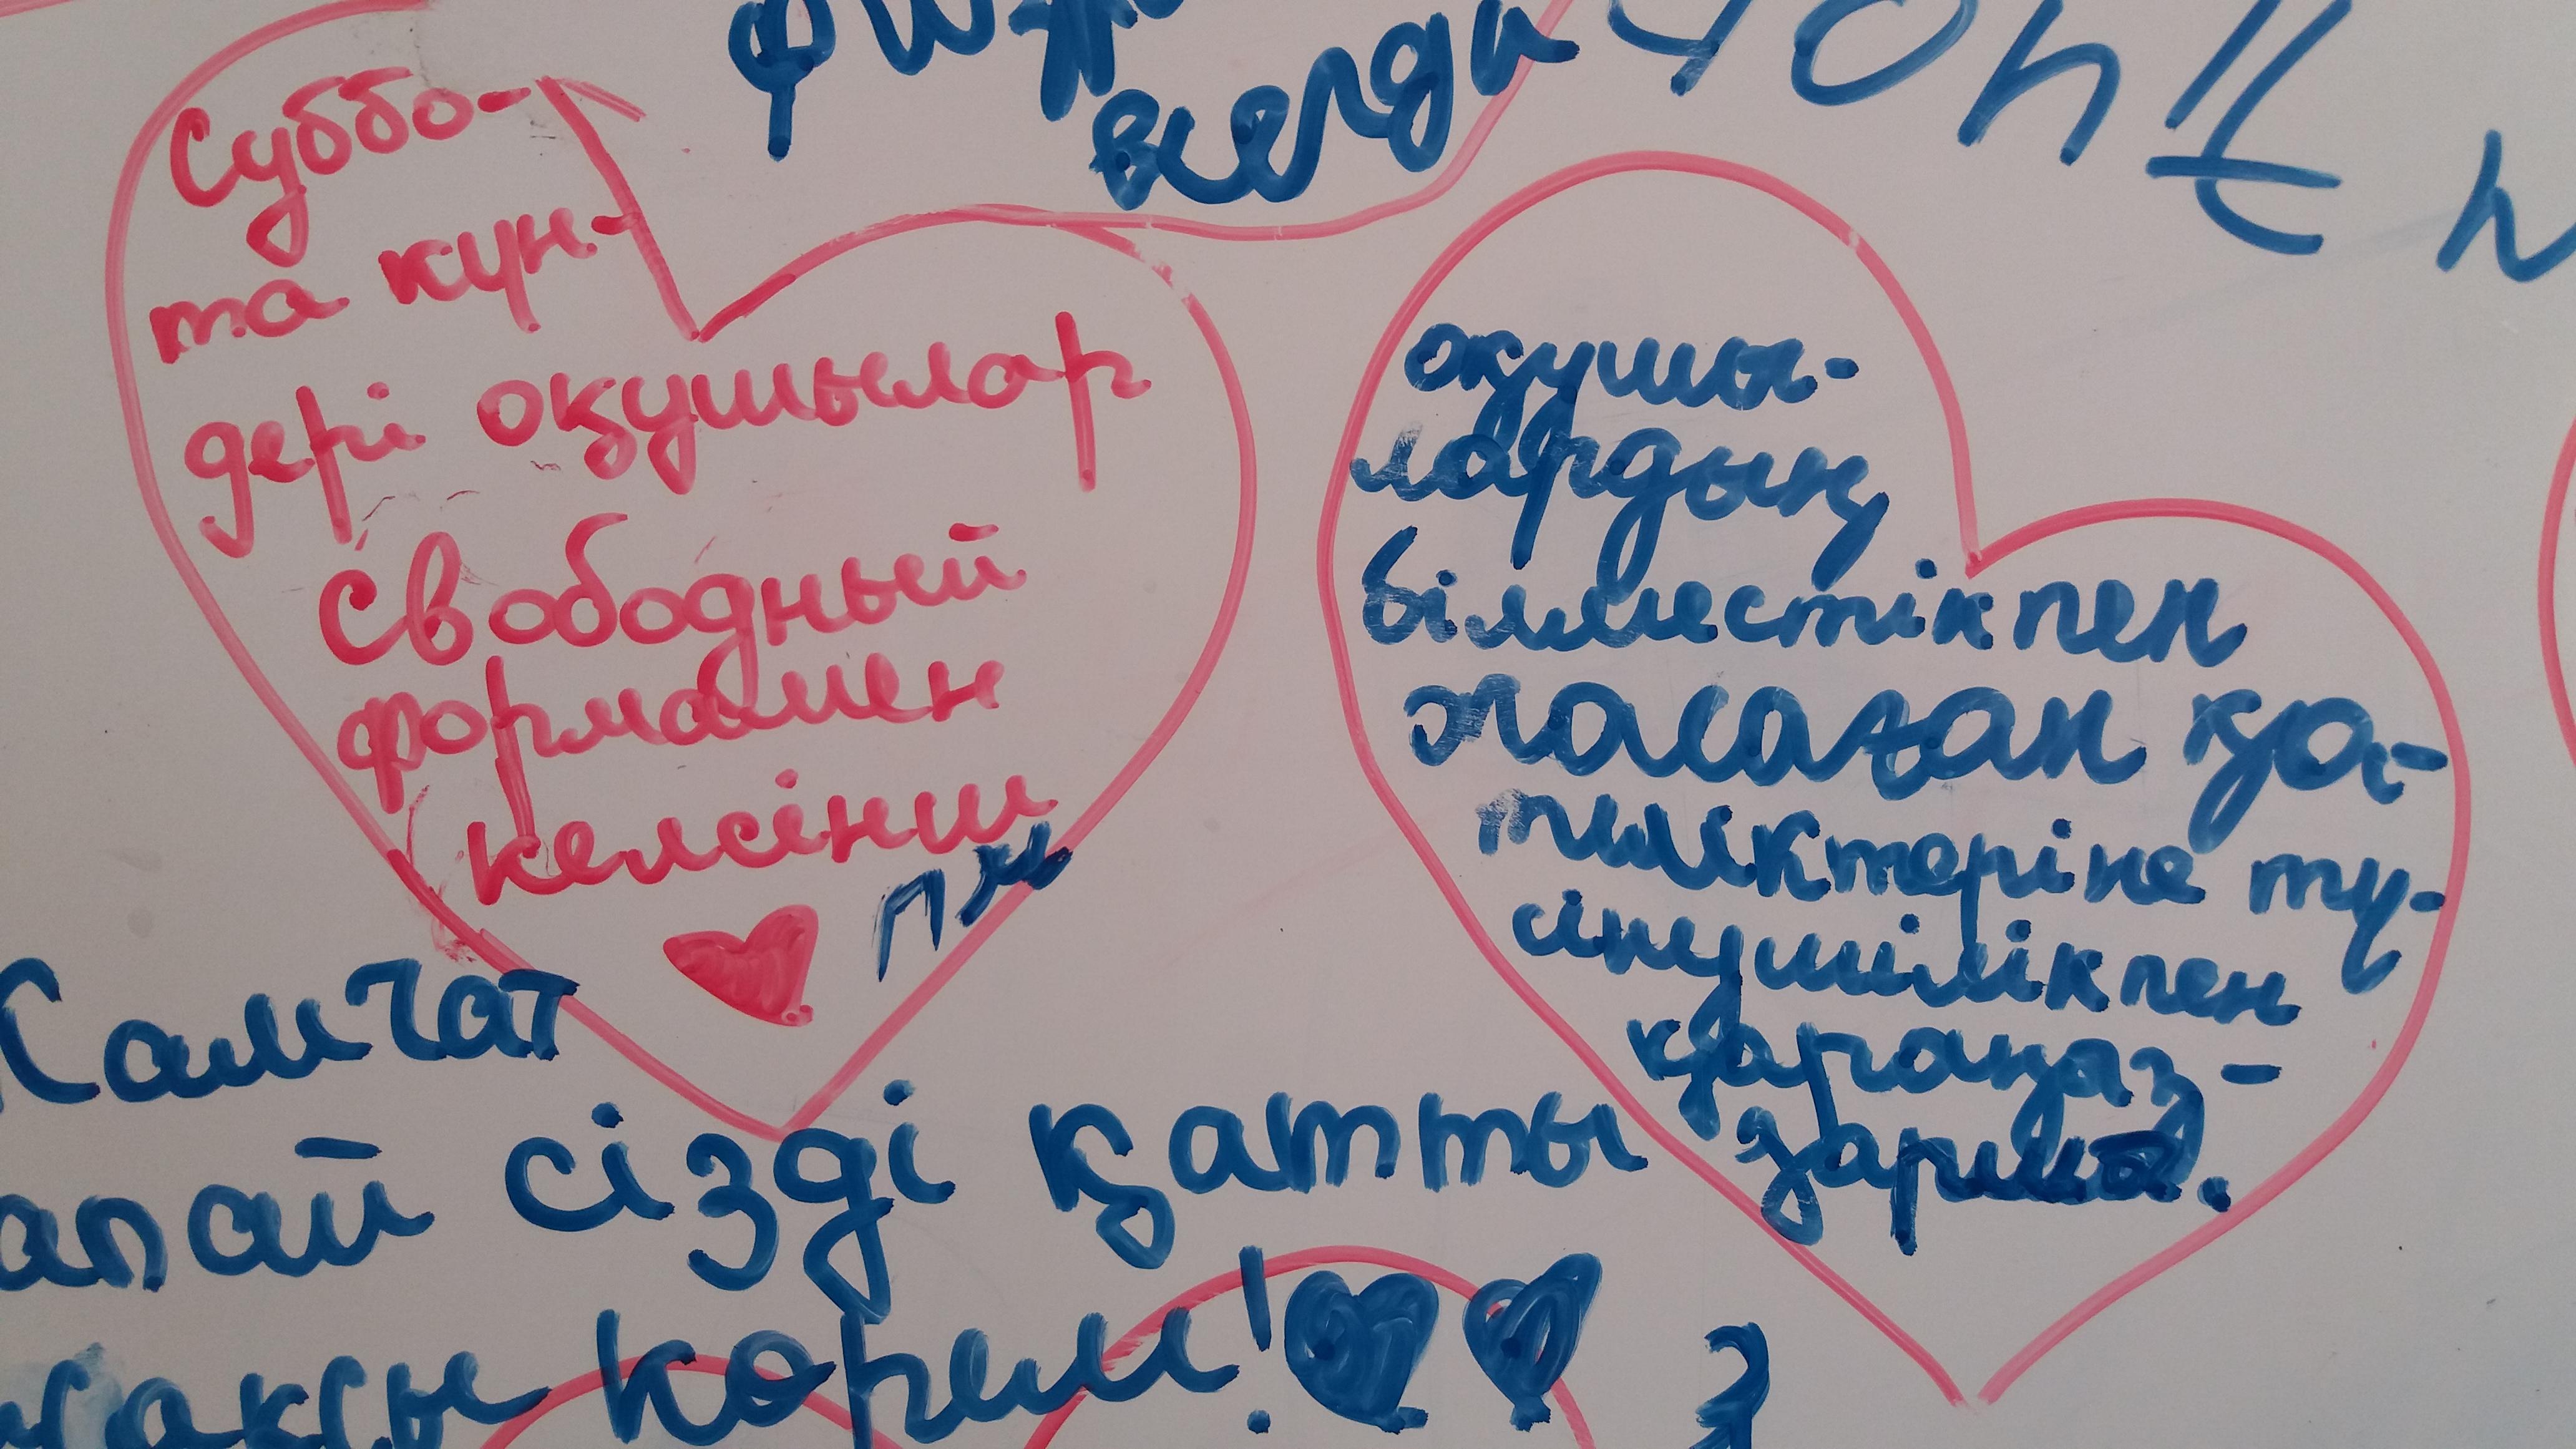 всегда
Суббо-
та күн-
дері оқушылар
свободный
формамен
келсінші
пж
оқушы-
лардың
білместікпен
жасаған қа-
теліктеріне тү-
сінушілікпен
қараңыз-
Камчат
апай сізді қатты
жақсы көрем!